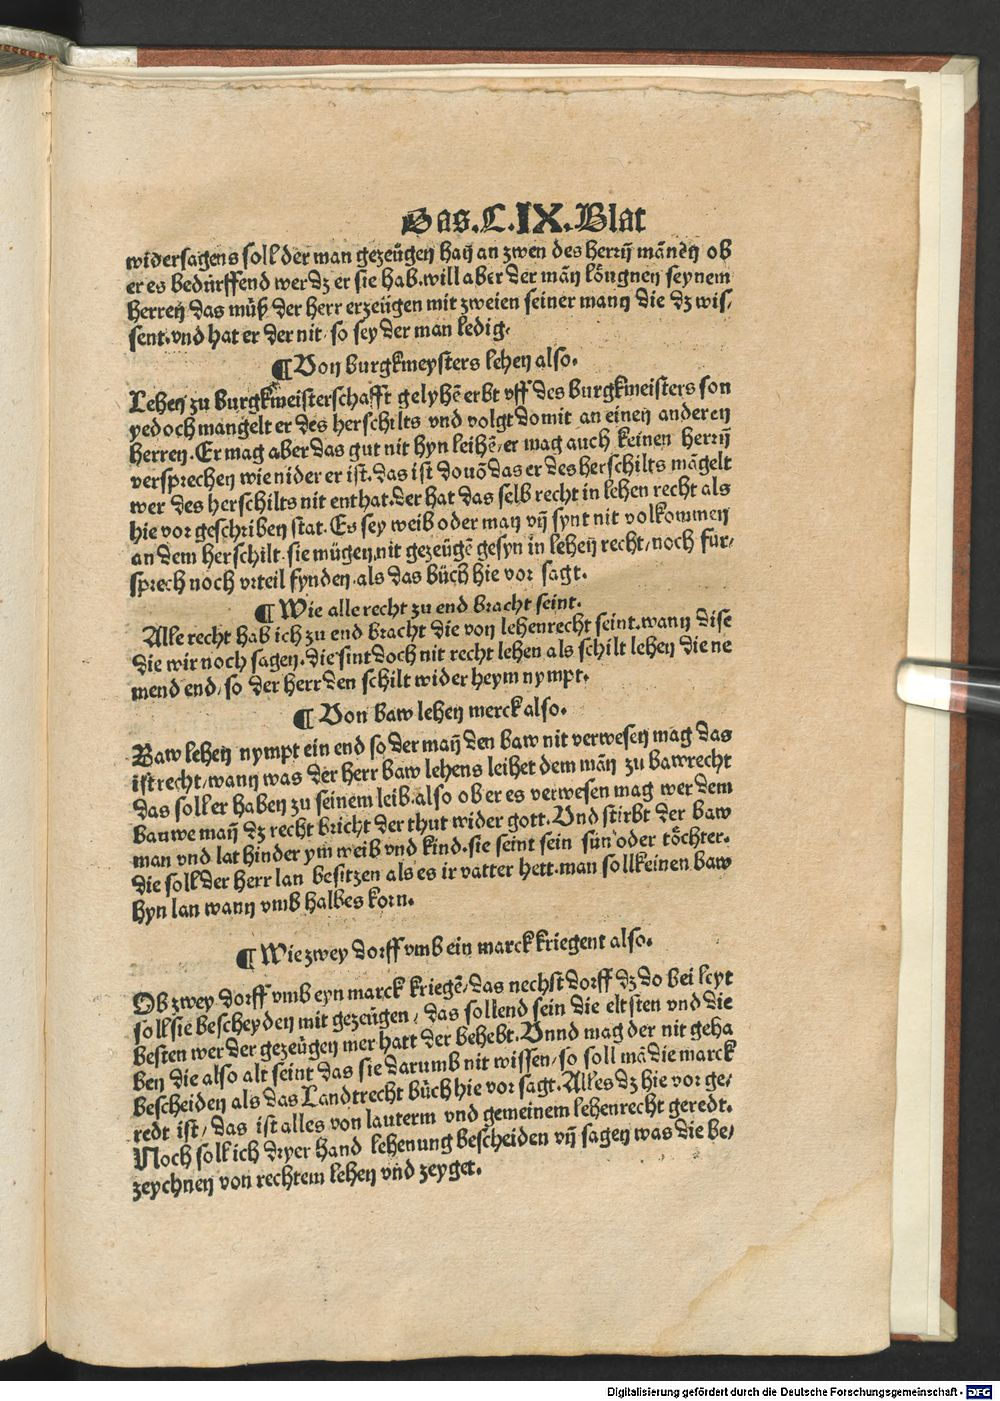 Das.C.IX.Blat
widersagens soll der man gezeügen han an zwen des herrn̄ mānen ob
er es bedürffend wer dz er sie hab. will aber der mān löugnen seynem
herren das müß der herr erzeügen mit zweien seiner mann die dz wis/
sent. vnd hat er der nit/ so sey der man ledig.
¶ Von burgkmeysters lehen also.
Lehen zu burgkmeisterschafft gelyhē erbt vff des burgkmeisters son
yedoch mangelt er des herschilts vnd volgt domit an einen anderen
herren. Er mag aber das gut nit hyn leihē/ er mag auch keinen herrn̄
versprechen wie nider er ist. das ist douō das er des herschilts māgelt
wer des herschilts nit enthat. der hat das selb recht in lehen recht als
hie vor geschriben stat. Es sey weib oder man vn̄ synt nit volkommen
an dem herschilt. sie mügen nit gezeügē gesyn in lehen recht/ noch für/
sprech noch vrteil fynden. als das büch hie vor sagt.
¶ Wie alle recht zu end bracht seint.
Alle recht hab ich zu end bracht die von lehenrecht seint. wann dise
die wir noch sagen. die sint doch nit recht lehen als schilt lehen die ne
mend end/ so der herr den schilt wider heym nympt.
¶ Von baw lehen merck also.
Baw lehen nympt ein end so der man̄ den baw nit verwesen mag das
ist recht/ wann was der herr baw lehens leihet dem mān zu bawrecht
das soll er haben zu seinem leib. also ob er es verwesen mag wer dem
bauwe man̄ dz recht bricht der thut wider gott. Vnd stirbt der baw
man vnd lat hinder ym weib vnd kind. sie seint sein sün oder töchter.
die soll der herr lan besitzen als es ir vatter hett. man soll keinen baw
hyn lan wann vmb halbes korn.
¶ Wie zwey dorff vmb ein marck kriegent also.
Ob zwey dorff vmb eyn marck kriegē/ das nechst dorff dz do bei leyt
soll sie bescheyden mit gezeügen/ das sollend sein die eltsten vnd die
besten wer der gezeügen mer hatt der behebt. Vnnd mag der nit geha
ben die also alt seint das sie darumb nit wissen/ so soll mā die marck
bescheiden als das Landtrecht büch hie vor sagt. Alles dz hie vor ge/
redt ist/ das ist alles von lauterm vnd gemeinem lehenrecht geredt.
Noch soll ich dryer hand lehenung bescheiden vn̄ sagen was die be/
zeychnen von rechtem lehen vnd zeyget.
Digitalisierung gefördert durch die Deutsche Forschungsgemeinschaft - DFG